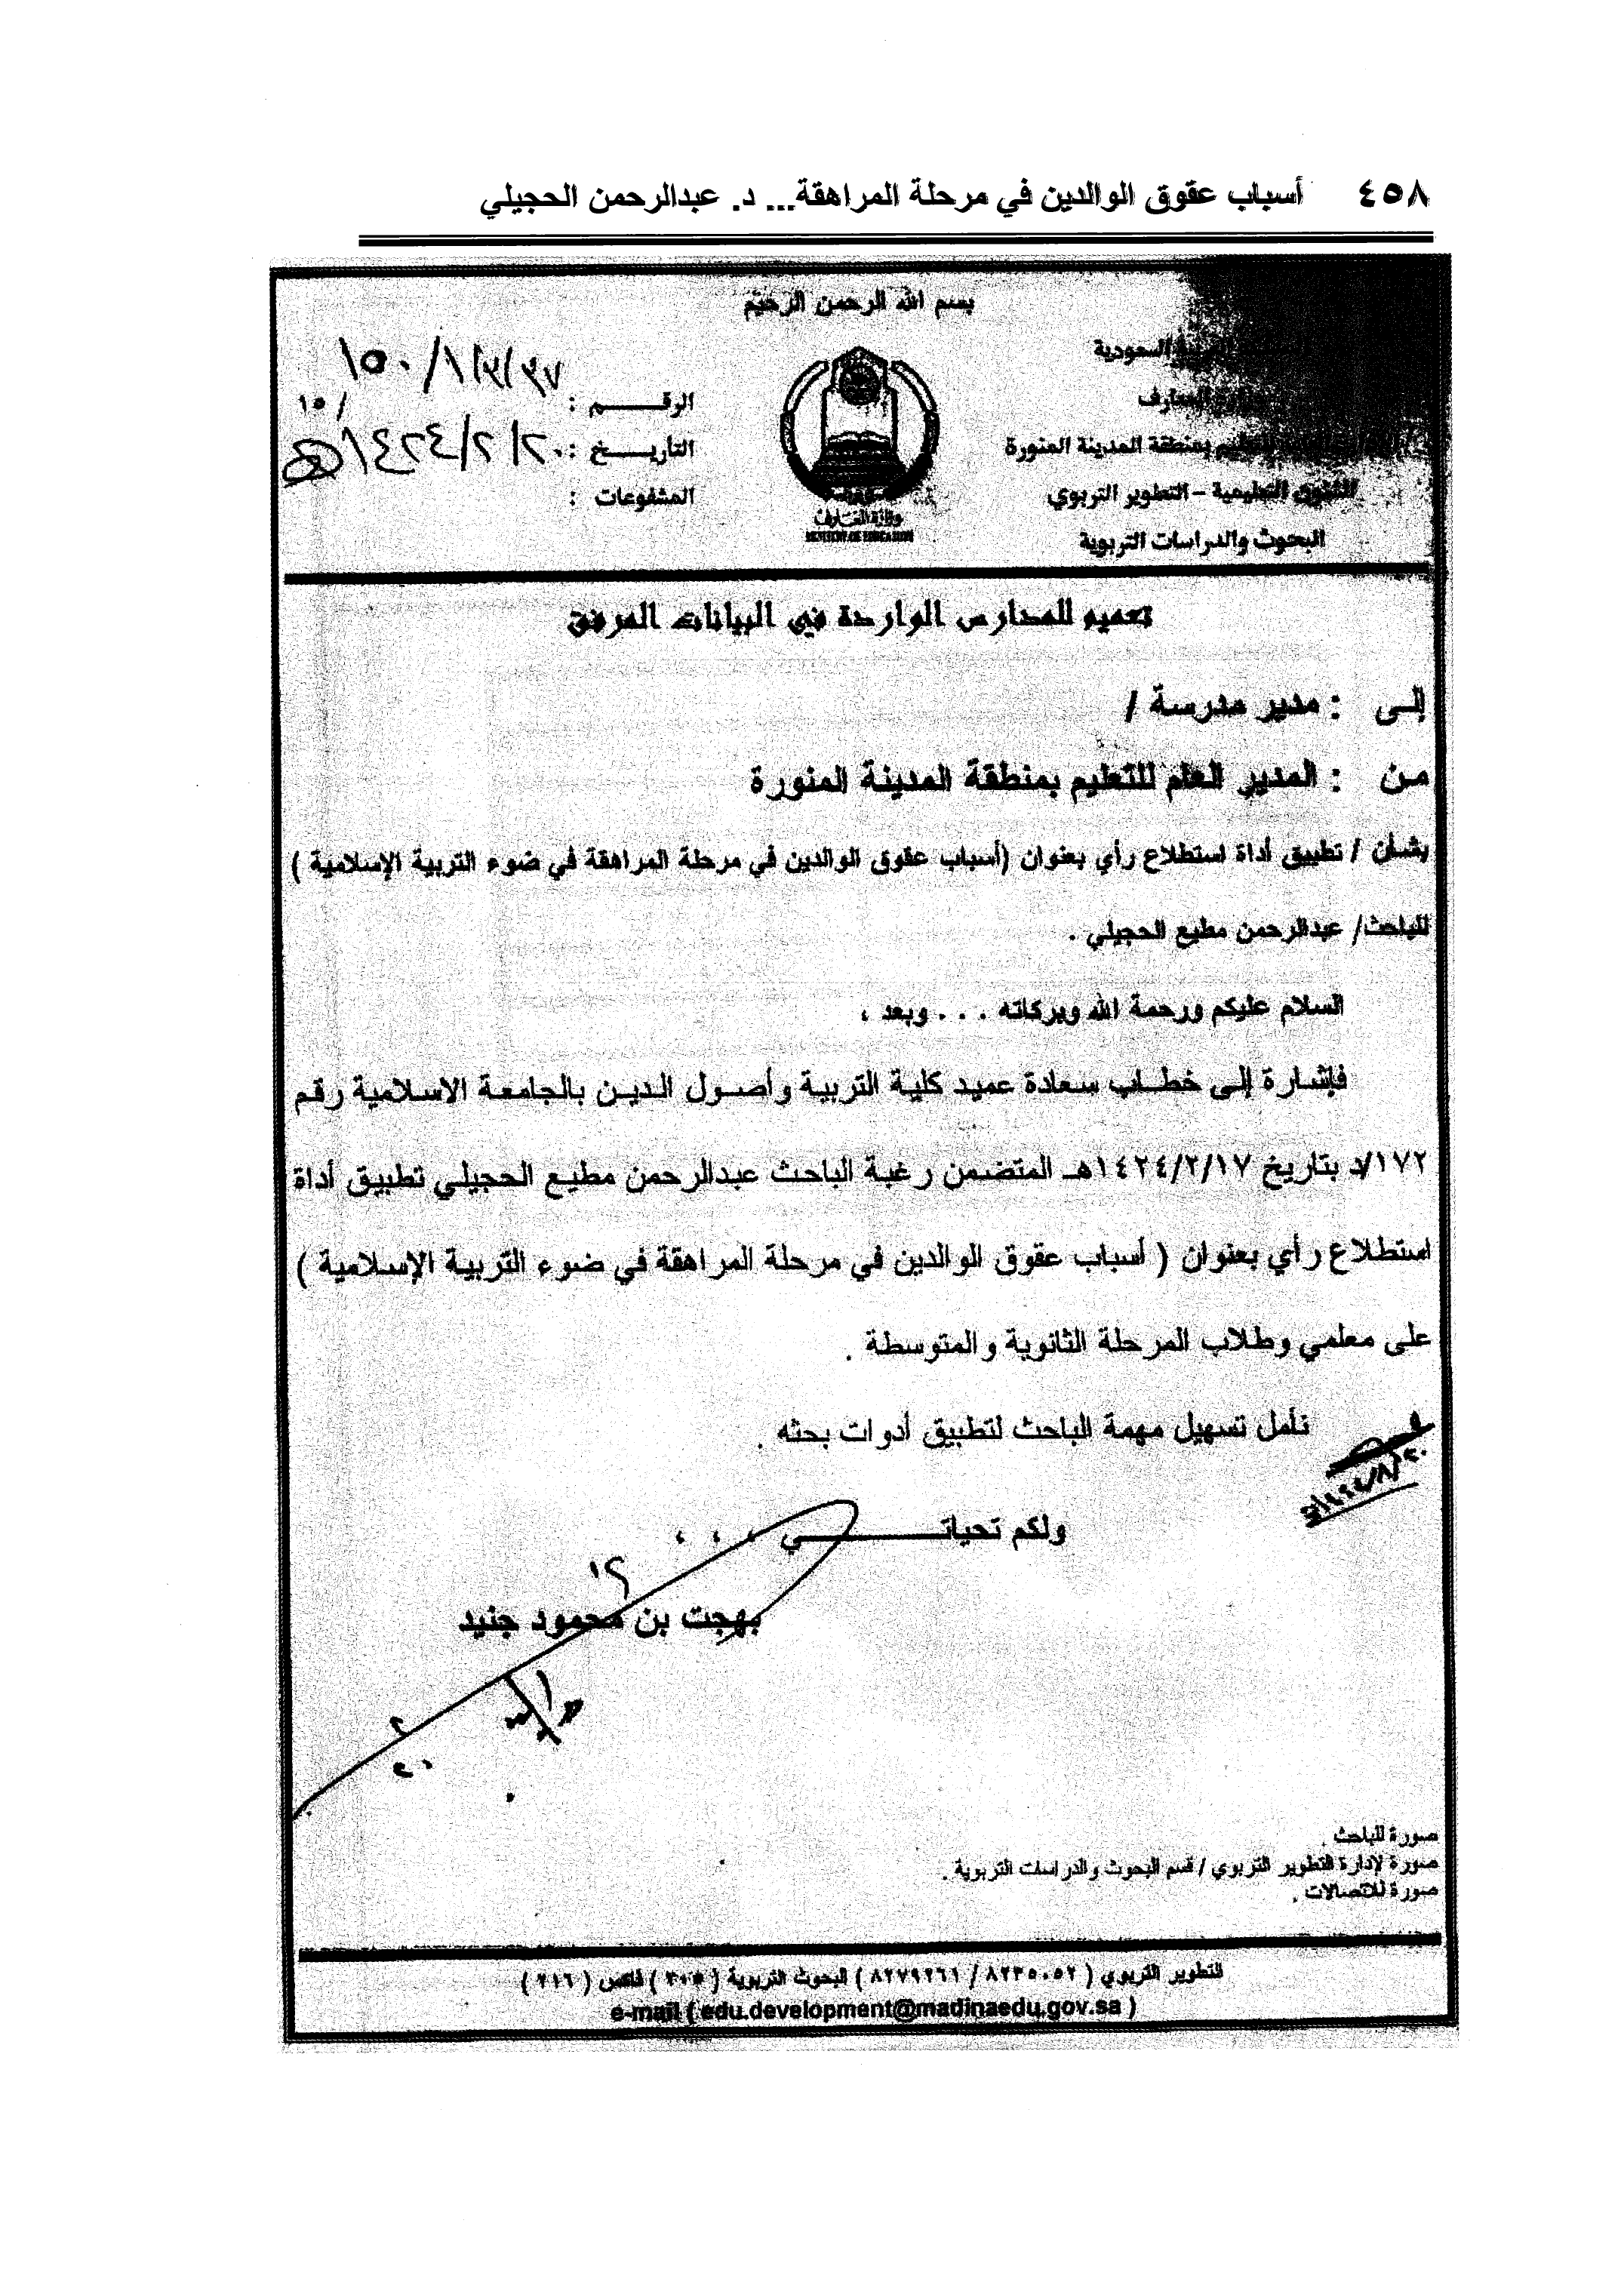 ٤٥٨ أسباب عقوق الوالدين في مرحلة المراهقة... د. عبدالرحمن الحجيلي
بسم الله الرحمن الرحيم
السعودية
المعارف
بمنطقة المدينة المنورة
الشئون التعليمية – التطوير التربوي
البحوث والدراسات التربوية
وزارة المعارف
MINISTRY OF EDUCATION
الرقـــــــم :
التأريــــــخ : ١٤٢٤/٢/٢٠
المشفوعات :
تعميم للمدارس الواردة في البيانات المرفق
إلـى : مدير مدرسة /
مـن : المدير العام للتعليم بمنطقة المدينة المنورة
بشأن / تطبيق أداة استطلاع رأي بعنوان (أسباب عقوق الوالدين في مرحلة المراهقة في ضوء التربية الإسلامية )
للباحث/ عبدالرحمن مطيع الحجيلي .
السلام عليكم ورحمة الله وبركاته . . . وبعد ،
فإشارة إلى خطاب سعادة عميد كلية التربية وأصول الدين بالجامعة الاسلامية رقم
١٧٢/د بتاريخ ١٤٢٤/٢/١٧هـ المتضمن رغبة الباحث عبدالرحمن مطيع الحجيلي تطبيق أداة
استطلاع رأي بعنوان ( أسباب عقوق الوالدين في مرحلة المراهقة في ضوء التربية الإسلامية )
على معلمي وطلاب المرحلة الثانوية والمتوسطة .
نأمل تسهيل مهمة الباحث لتطبيق أدوات بحثه .
ولكم تحياتــــــــــــي ، ، ،
بهجت بن محمود جنيد
صورة للباحث .
صورة لإدارة التطوير التربوي / قسم البحوث والدراسات التربوية .
صورة للاتصالات .
التطوير التربوي ( ٨٢٣٥٠٥٢ / ٨٢٧٩٢٦١ ) البحوث التربوية ( ٣٠٥ ) فاكس ( ٣١٦ )
e-mail ( edu.development@madinaedu.gov.sa )